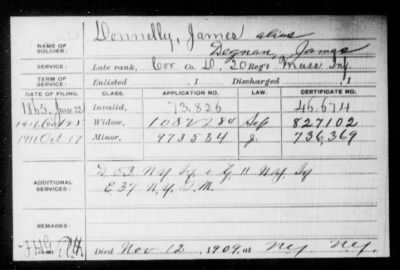 Donnelly, James alias
NAME OF SOLDIER: Degnan, James
SERVICE: Late rank, Cor Co. D, 20 Reg't Mass Inf.
TERM OF SERVICE: Enlisted , 1 Discharged , 1
DATE OF FILING. CLASS. APPLICATION NO. LAW. CERTIFICATE NO.
1865, June 22 Invalid, 73.826 46,674
Widow, 827102
1911 Oct 17 Minor, 973584 736,369
ADDITIONAL SERVICES: D 53 Inf & G 11 Inf
E 37 N.Y.
Died Nov 12, 1909, at Ny Ny.